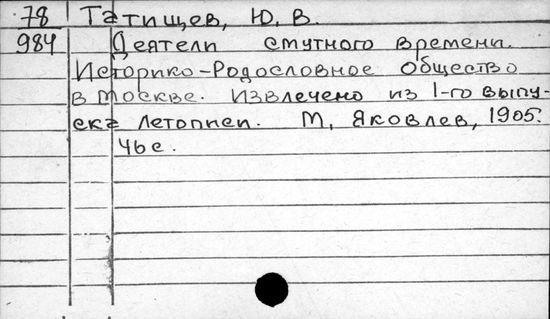 78 Татищев, Ю. В.
984 Деятели смутного времени.
Историко-Родословное общество
в Москве. Извлечено из 1-го выпу-
ска летописи. М, Яковлев, 1905.
46 с.